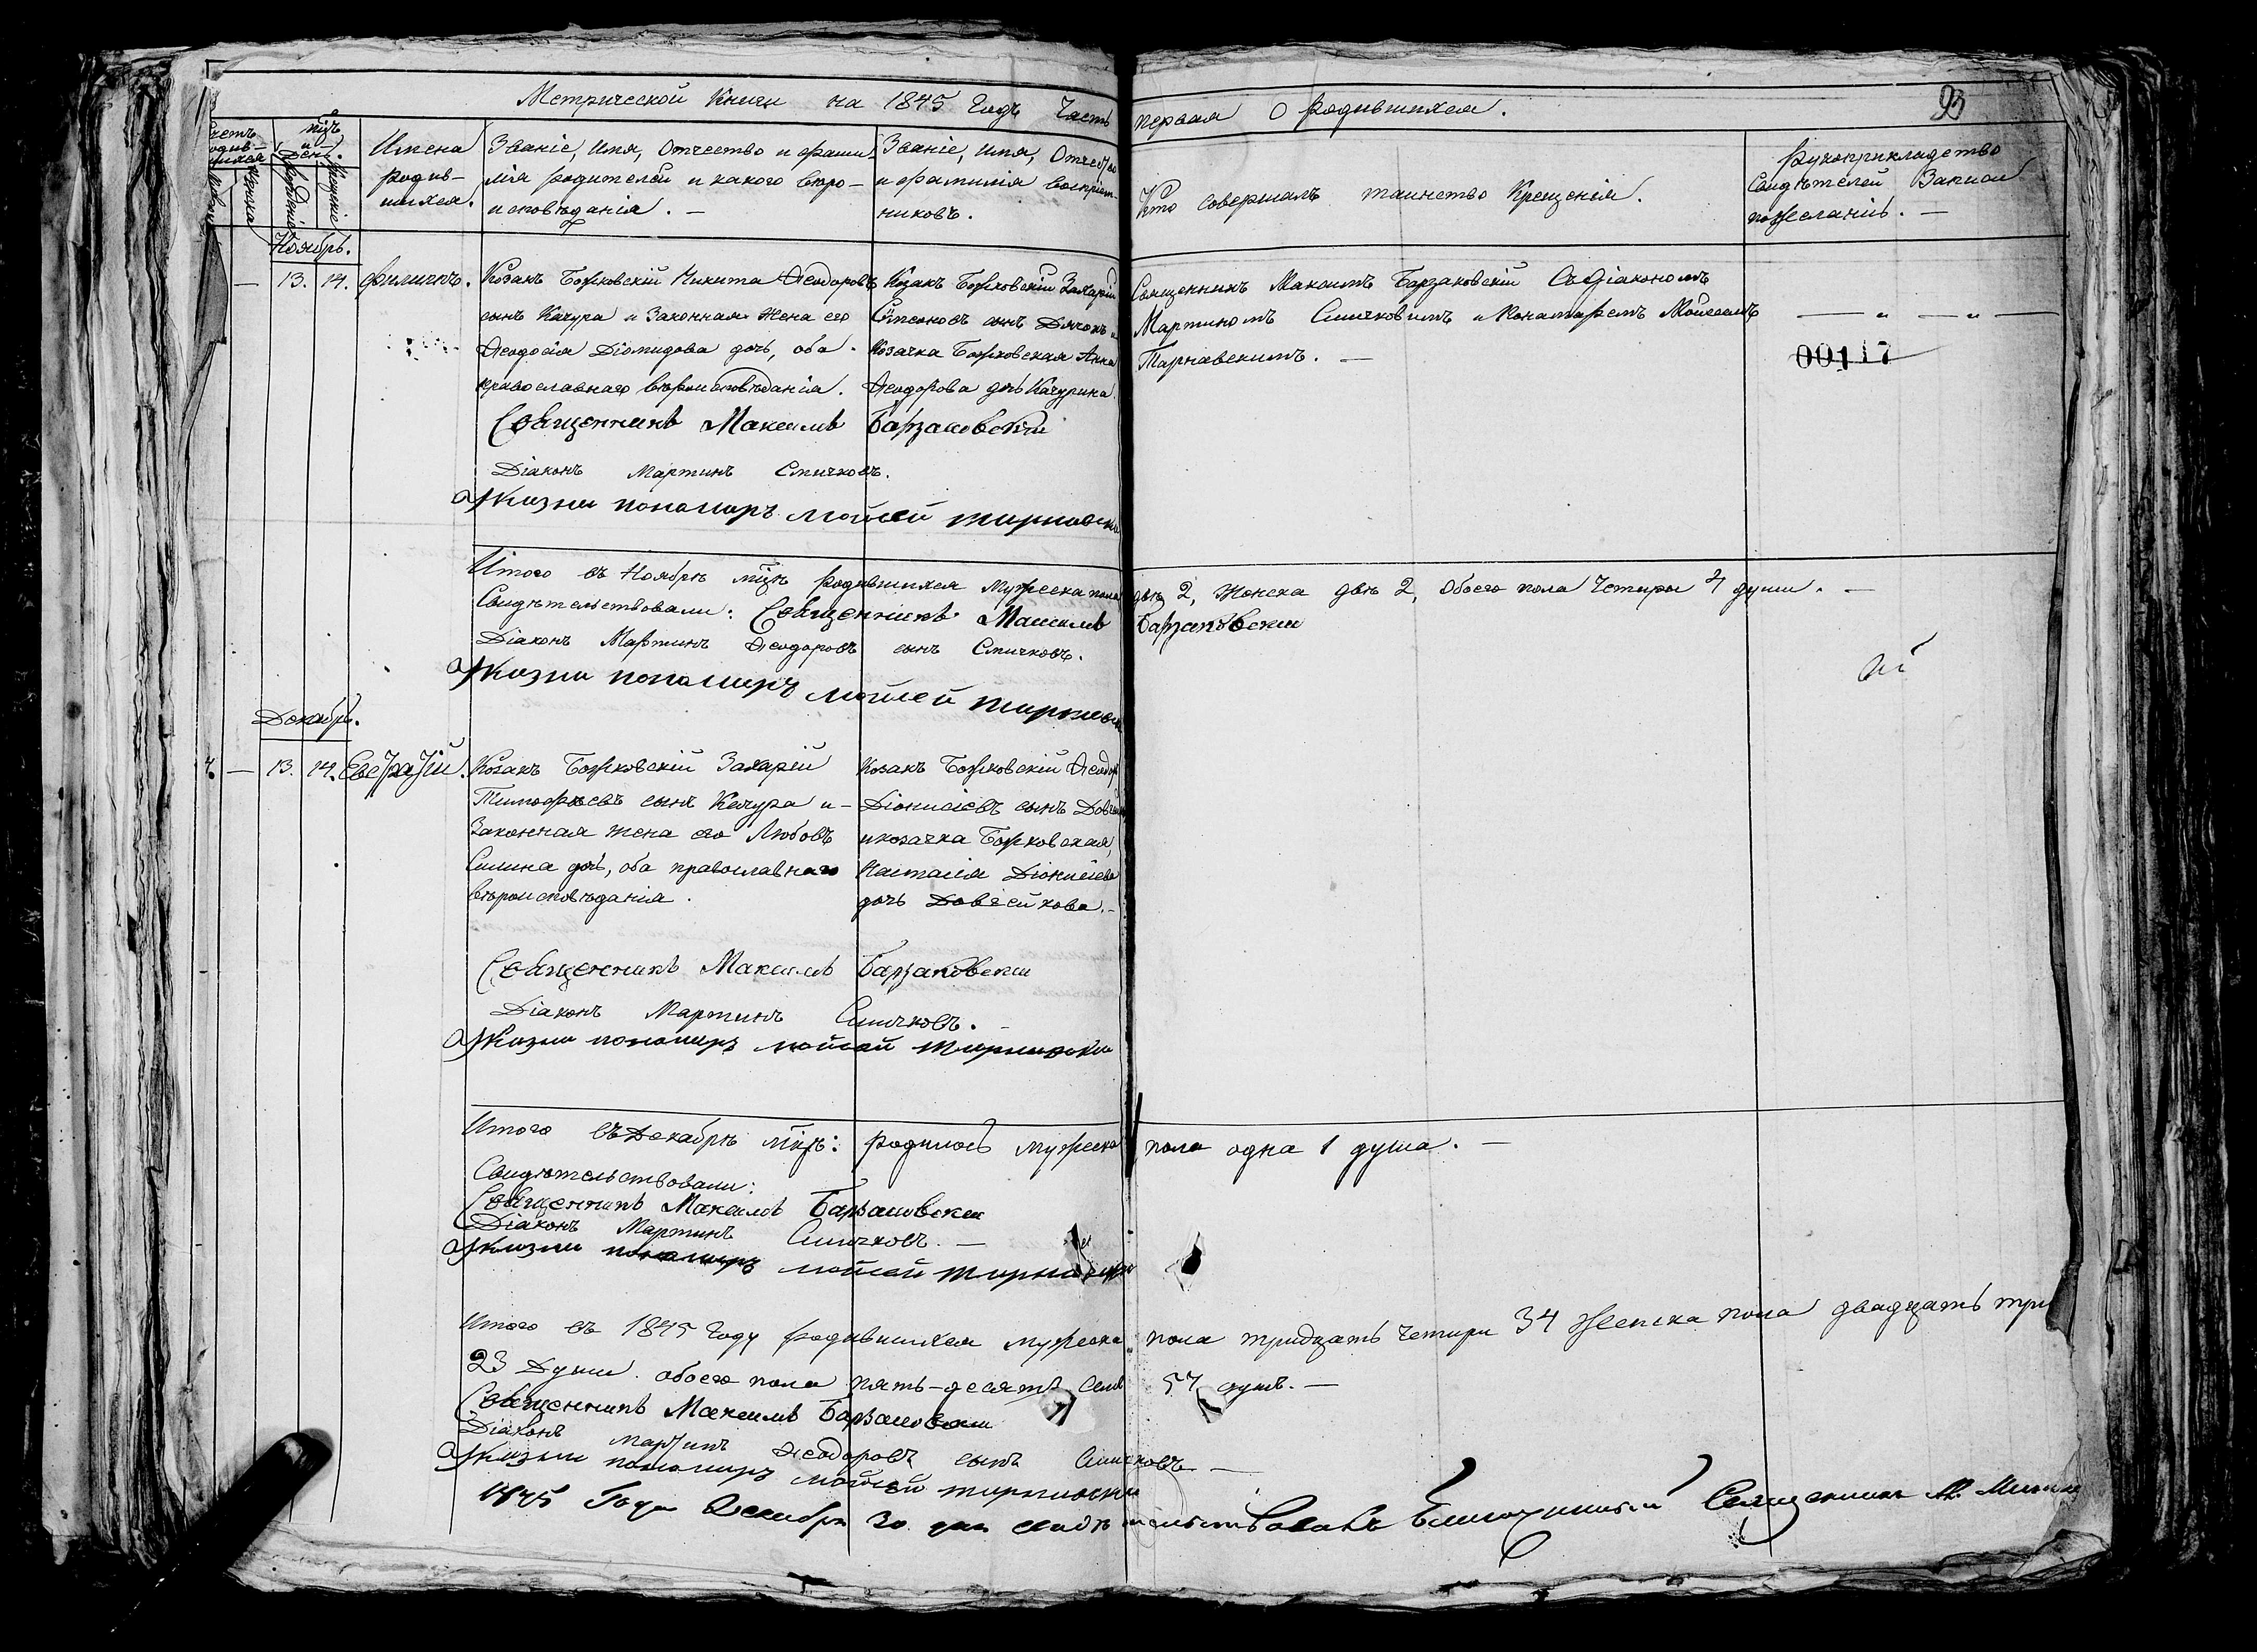 Метрической Книги на 1845 Годъ Часть первая О Родившихся. 93
Имена родив-шихся.
Званіе, Имя, Отчество и фами-
лія родителей и какого вѣро-
исповѣданія. —
Званіе, имя, Отчество
и фамилія воспріем-
никовъ.
Кто совершалъ таинство Крещенія.
Рукоприкладство
Свидѣтелей Записи
по желанію. —
Ноябрь.
— 13. 14. Филиппъ.
Козакъ Божковскій Никита Ѳеодоровъ
сынъ Качура и Законная Жена его
Ѳеодосія Діомидова дочь, оба
православнаго вѣроисповѣданія.
Козакъ Божковскій Захарій
Сѵмеоновъ сынъ Дячокъ и
Козачка Божковская Анна
Ѳеодорова дочь Качурина.
Священникъ Максимъ Барзаковскій Съ Діакономъ
Мартиномъ Смичковимъ и Понамаремъ Мойсеемъ
Тарнавскимъ. —
00117
Священникъ Максимъ Барзаковскій
Діаконъ Мартинъ Смичковъ.
пономарь Мойсей Тарнавски
Итого въ Ноябрѣ мцѣ родившихся Мужеска пола два 2, Женска двѣ 2, Обоего пола Четыри 4 души. —
Свидѣтельствовали: Священникъ Максимъ Барзаковскии
Діаконъ Мартинъ Ѳеодоровъ сынъ Смичковъ.
пономарь Мойсей Тарнавски
Декабрь.
— 13. 14. Евстратій.
Козакъ Божковскій Захарій
Тимофѣевъ сынъ Качура и —
Законная жена его Любовъ
Силина дочь, оба православнаго
вѣроисповѣданія.
Козакъ Божковскій Ѳеодоръ
Діонисіевъ сынъ
и козачка Божковская,
Настасія Діонисіева
дочь
Священникъ Максимъ Барзаковски
Діаконъ Мартинъ Смичковъ.
пономарь Мойсей Тарнавски
Итого въ Декабрѣ мцѣ: родилось мужеска пола одна 1 душа. —
Свидѣтельствовали:
Священникъ Максимъ Барзаковски
Діаконъ Мартинъ Смичковъ. —
пономарь Мойсей Тарнавски
Итого въ 1845 Году родившихся мужеска пола тридцать четыри 34 Женска пола двадцать три
23 Души. обоего пола пять-десятъ семъ 57 душъ. —
Священникъ Максимъ Барзаковски
Діаконъ Мартинъ Ѳеодоровъ сынъ Смичковъ. —
пономарь Мойсей Тарнавски
1845 Года Декабря 30 дня свидѣтельствовалъ Благочинный Священникъ М.